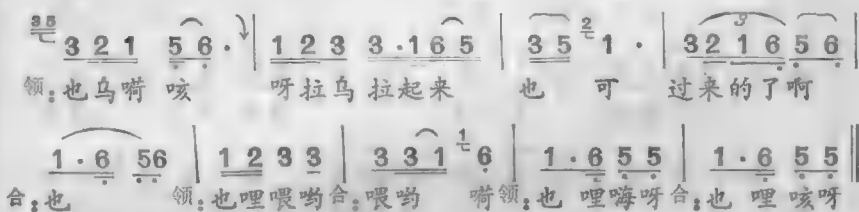 35 321 56· | 123 3·165 | 35 2 1· | 3216 56 |
领:也乌嗬 咳 呀拉乌 拉起来 也 可 过来的了啊
1·6 56 | 12 33 | 331 1 6 | 1·6 55 | 1·6 55 ‖
合:也 领:也哩喂哟 合:喂哟 嗬 领:也 哩嗨呀 合:也 哩 咳呀